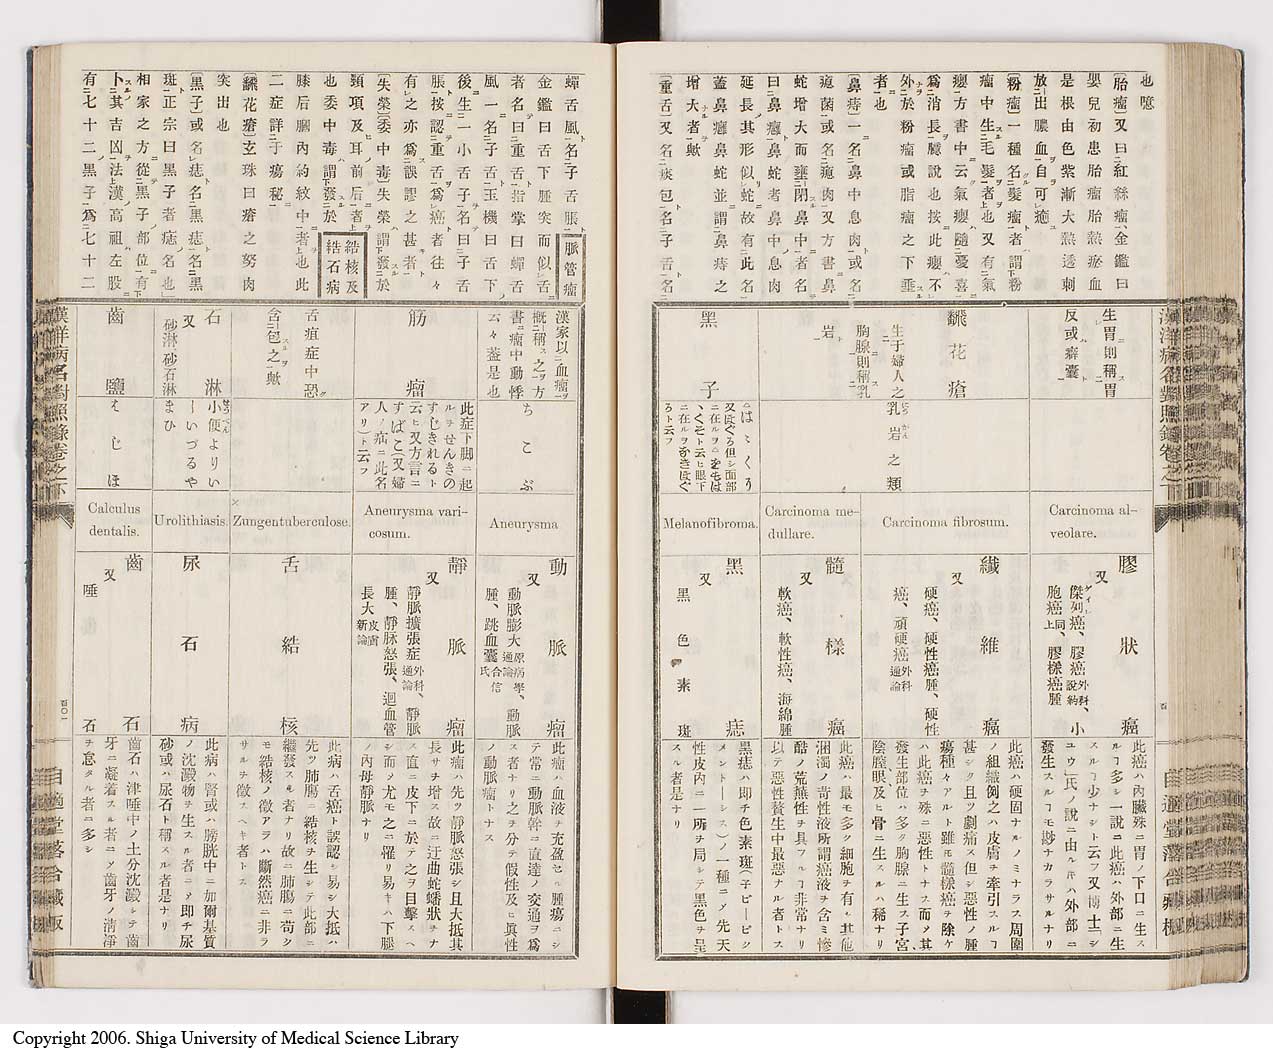 也噫
〔胎瘤〕又曰紅絲瘤、金鑑曰
嬰兒初患胎瘤胎熱瘀血
是根由色紫漸大熱透刺
放出膿血自可癒
〔粉瘤〕一種名髮瘤者謂粉
瘤中生毛髮者也又有氣
癭方書中云氣癭隨憂喜
爲消長臆說也按此癭不
外於粉瘤或脂瘤之下垂
者也
〔鼻痔〕一名鼻中息肉或名
瘜菌或名瘜肉又方書鼻
蛇增大而壅閉鼻中者名
曰鼻癰鼻蛇者鼻中息肉
延長其形似蛇故有此名
蓋鼻癰鼻蛇並謂鼻痔之
增大者歟
〔重舌〕又名痰包名子舌名
生胃則稱胃
反或癖囊
膠狀癌
又
傑列癌、膠癌
胞癌、膠樣癌腫
Carcinoma al-
veolare.
此癌ハ內臟殊ニ胃ノ下口ニ生ス
ル多シ一說ニ此癌ハ外部ニ生
スル少ナシト云フ又博士「シ
ユウ」氏ノ說ニ由ルキハ外部ニ
發生スルモ尠ナカラサルナリ
飜花瘡
生于婦人之
胸腺則稱乳
岩
乳岩之類
Carcinoma fibrosum.
纎維癌
又
硬癌、硬性癌腫、硬性
癌、頑硬癌
此癌ハ硬固ナルノミナラス周圍
ノ組織倒之ハ皮膚ヲ牽引スル
甚シク且ツ劇痛ス但シ惡性ノ腫
瘍種々アルト雖モ髓樣癌ヲ除ケ
ハ此癌ヲ殊ニ惡性トナス而ノ其
發生部位ハ多ク胸腺ニ生ス子宮、
陰膣眼及ヒ骨ニ生スルハ稀ナリ
Carcinoma me-
dullare.
髓樣癌
又
軟癌、軟性癌、海綿腫
此癌ハ最モ多ク細胞ヲ有シ其他
溷濁ノ苛性液所謂癌液ヲ含ミ慘
酷ノ荒蕪性ヲ具フル非常ナリ
以テ惡性贅生中最惡ナル者トス
黑子
はゝくろ
又ほくろ但シ面部
ニ在ルヲ
ニ在ルヲなきぼく
ろト云フ
Melanofibroma.
黑痣
又
黑色素斑
黑痣ハ卽チ色素斑（子ピーピシ
メントーシス）ノ一種ニノ先天
性皮內ニ一所ヲ局シテ黑色ヲ呈
スル者是ナリ
蟬舌風名子舌脹
金鑑曰舌下腫突而似舌
者名曰重舌指掌曰蟬舌
風一名子舌玉機曰舌下
後生一小舌子名曰子舌
脹按認重舌爲癌者往々
有之亦爲誤謬之甚者
〔失榮〕〔委中毒〕失榮謂發於
頸項及耳前后者
也委中毒謂發於
膝后膕內約紋中者也此
二症詳于瘍秘
〔飜花瘡〕玄珠曰瘡之努肉
突出也
〔黑子〕或名痣名黑痣名黑
斑正宗曰黑子者痣名也
相家之方從黑子部位有
卜其吉凶法漢高祖左股
有七十二黑子爲七十二
脈管瘤
結核及
結石病
漢家以血瘤
概稱之方
書瘤中動悸
云々蓋是也
ちこぶ
Aneurysma
動脈瘤
又
動脈膨大
腫、跳血囊
此瘤ハ血液ヲ充盈セル腫瘍ニシ
テ常ニ動脈幹ニ直達ノ交通ヲ爲
ス者ナリ之ヲ分テ假性及ヒ眞性
ノ動脈瘤トナス
筋瘤
此症下脚ニ起
ルヲせんきの
すじきれるト
云ヒ又方言ニ
すばこ（又婦
人ノ疝ニ此名
アリ）ト云フ
Aneurysma vari-
cosum.
靜脈瘤
又
靜脈擴張症
腫、靜脉怒張、迴血管
長大
此瘤ハ先ツ靜脈怒張シ且大抵其
長サヲ增ス故ニ迂曲蛇蟠狀ヲナ
シ直ニ皮下ニ於テ之ヲ目擊スヘ
シ而ノ尤モ之ニ罹リ易キハ下腿
ノ內母靜脈ナリ
舌疽症中恐
含包之歟
Zungentuberculose.
舌結核
此病ハ舌癌ト誤認シ易シ大抵ハ
先ツ肺腸ニ結核ヲ生シテ此部ニ
繼發スル者ナリ故ニ肺腸ニ苟シク
モ結核ノ徵アラハ斷然癌ニ非ラ
サルヲ徵スヘキ者トス
石淋
又
砂淋砂石淋
小便よりい
しいづるや
まひ
Urolithiasis.
尿石病
此病ハ腎或ハ膀胱中ニ加爾基質
ノ沈澱物ヲ生スル者ニノ卽チ尿
砂或ハ尿石ト稱スル者是ナリ
齒鹽
はじほ
Calculus
dentalis.
齒石
又
唾石
齒石ハ津唾中ノ土分沈澱シテ齒
牙ニ凝着スル者ニノ齒牙ノ淸淨
ヲ怠タル者ニ多シ
漢洋病名對照錄卷之下
百〇一
自適堂落合藏版
Copyright 2006. Shiga University of Medical Science Library